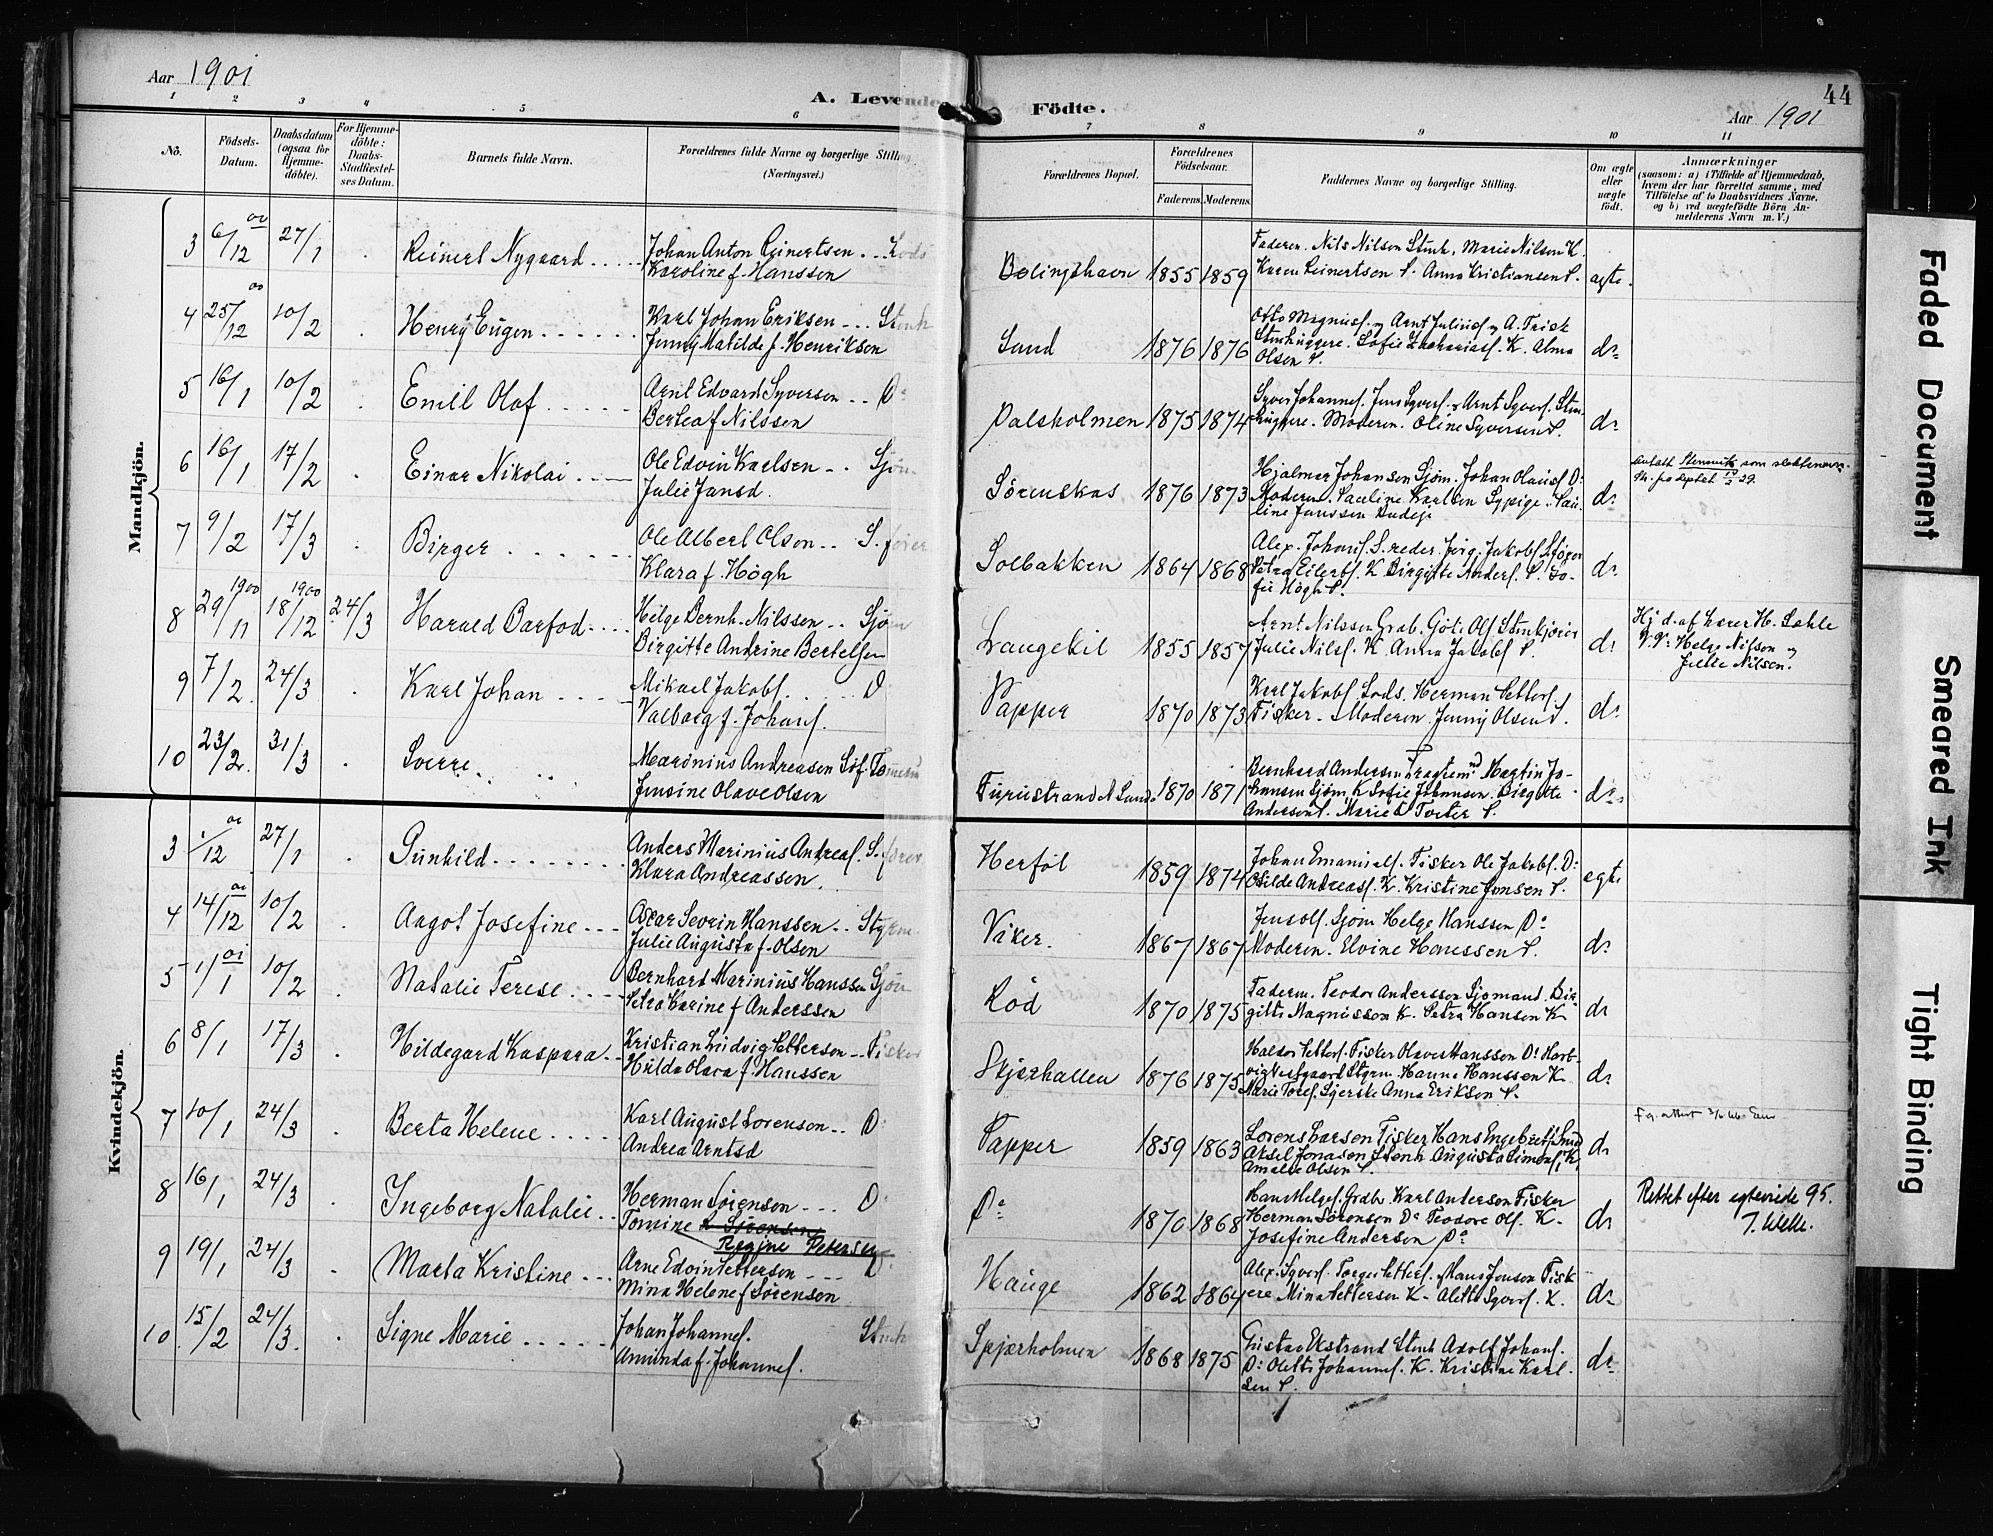 Aar 1901
A. Levende Födte.
44
Aar 1901
1 2 3 4 5 6 7 8 9 10 11
No.
Födsels-Datum.
Daabsdatum (ogsaa for Hjemme-döbte).
For Hjemme-döbte: Daabs-Stadfæstel-ses Datum.
Barnets fulde Navn.
Forældrenes fulde Navne og borgerlige Stilling
(Næringsvei.)
Forældrenes Bopæl.
Forældrenes Födselsaar.
Faderens. Moderens.
Faddernes Navne og borgerlige Stilling.
Om ægte eller uægte födt.
Anmærkninger
(saasom: a) i Tilfælde af Hjemmedaab, hvem der har forrettet samme, med Tilföielse af to Daabsvidners Navne, og b) ved uægtefödte Börn An-melderens Navn m. V.)
Mandkjön.
3 6/12 00 27/1 Reinert Nygaard Johan Anton Reinertsen Lods
Karoline f. Hanssen
Bølingshavn 1855 1859 Faderen. Nils Nilsen Stenh. Marie Nilsen K.
Karen Reinertsen P. Anna Kristiansen P. ægte.
4 25/12 00 10/2 Henry Eugen Karl Johan Eriksen Stenh
Jenny Matilde f. Henriksen
Sand 1876 1876 Otto Magnus. og Arnt Julius. og A. Frisk
Stenhuggere. Sofie Zakarias. K. Alma
Olsen P. do
5 16/1 10/2 Emil Olaf Arnt Edvard Syversen Do
Berte f. Nilssen
Dalsholmen 1875 1874 Syver Johannes. Jens Syvers. Arnt Syvers. Sten-
huggere. Moderen. Oline Syversen P. do
6 16/1 17/2 Einar Nikolai Ole Edvin Karlsen Sjøm
Julie Jansd.
Sørenskas 1876 1873 Hjalmar Johansen Sjøm. Johan Olaus. Do
Moderen. Pauline Karlsen Sypige. Pau-
line Janssen Budeje do
Antatt Stenvik som slektsnavn.
7 9/2 17/3 Birger Ole Albert Olsen S. fører
Klara f. Høgh
Solbakken 1864 1868 Alex. Johans. S. reder. Jørg. Jakobs. S. fører
Petra Eilerts. K. Birgitte Anders. P. So-
fie Høgh P. do
8 29/11 1900 18/12 1900 24/3 Harald Barfod Helge Bernh. Nilssen Sjøm
Birgitte Andrine Bertelsen
Langekil 1855 1857 Arnt Nilssen Grab. Göte Ols. Stenkjører
Julie Nils. K. Anna Jakobs. P. do
Hj. d. af lærer H. Sahle
V. V: Helge Nilsson og
Julie Nilsen.
9 7/2 24/3 Karl Johan Mikael Jakobs. Do
Valborg f. Johans.
Papper 1870 1873 Karl Jakobs. Lods. Herman Petters.
Fisker. Moderen. Jenny Olsen P. do
10 23/2 31/3 Sverre Marinius Andreasen
Jensine Olave Olsen
Furustrand N. Sand. 1870 1871 Bernhard Andersen Fragtemd Martin Jo-
hansen Sjøm. K Sofie Johansen. Birgitte
Andersen P. Marie Torter P. do
Kvindekjön.
3 1/12 00 27/1 Gunhild Anders Marinius Andreas. S. fører
Klara Andreassen.
Herføl 1859 1874 Johan Emanuels. Fisker Ole Jakobs. Do
Otilde Andreas. K. Kristine Jensen P. egte
4 14/12 00 10/2 Aagot Josefine Oscar Severin Hanssen Styrm.
Julie Augusta f. Olsen
Viker. 1867 1867 Jens Ols. Sjøm Helge Hanssen Do
Moderen. Elvine Hanssen P. do
5 1/1 01 10/2 Natalie Terese Bernhard Marinius Hanssen Sjøm
Petra Karine f. Anderssen
Rød 1870 1875 Faderen. Teodor Andersson Sjømand. Bir-
gitte Magnisson K. Petra Hansen K do
6 8/1 17/3 Hildegard Kaspara Kristian Ludvig Petterson Fisker
Hulda Olava f. Hanssen
Skjærhallen 1876 1875 Haldor Petters. Fisker Olaves Hanssen Do Hart-
vig Nygaard Styrm. Hanna Hanssen K.
Marie Tores. Syerske Anna Eriksen P. do
7 10/1 24/3 Berta Helene Karl August Lorensen Do
Andrea Arntsd
Papper 1859 1863 Lorens Larsen Fisker Hans Engebret. Smed
Aksel Jonason Stenh Augusta Simons. K.
Amalie Olsen P. do
8 16/1 24/3 Ingeborg Natalie Herman Sørensen Do
Tomine f. Sörensen
Regine Petersen
Do 1870 1868 Hans Helges. Grdbr. Karl Anderson Fisker
Herman Sørensen Do Teodore Ols. K.
Josefine Andersen Do do
Rettet efter egtevide 95.
9 19/1 24/3 Marta Kristine Arne Edvin Petterson Do
Mina Helene f. Sørensen
Hauge 1862 1864 Alex. Syvers. Torger Petters. Hans Jenson Fisk
ere Mina Pettersen K. Alette Syvers. K. do
10 15/2 24/3 Signe Marie Johan Johannes. Stenh
Amunda f. Johannes.
Spjærholmen 1868 1875 Gustav Ekstrand Stenh Adolf Johans.
Do Olette Johannes. K. Kristine Karl-
sen P. do
Faded Document
Smeared Ink
Tight Binding